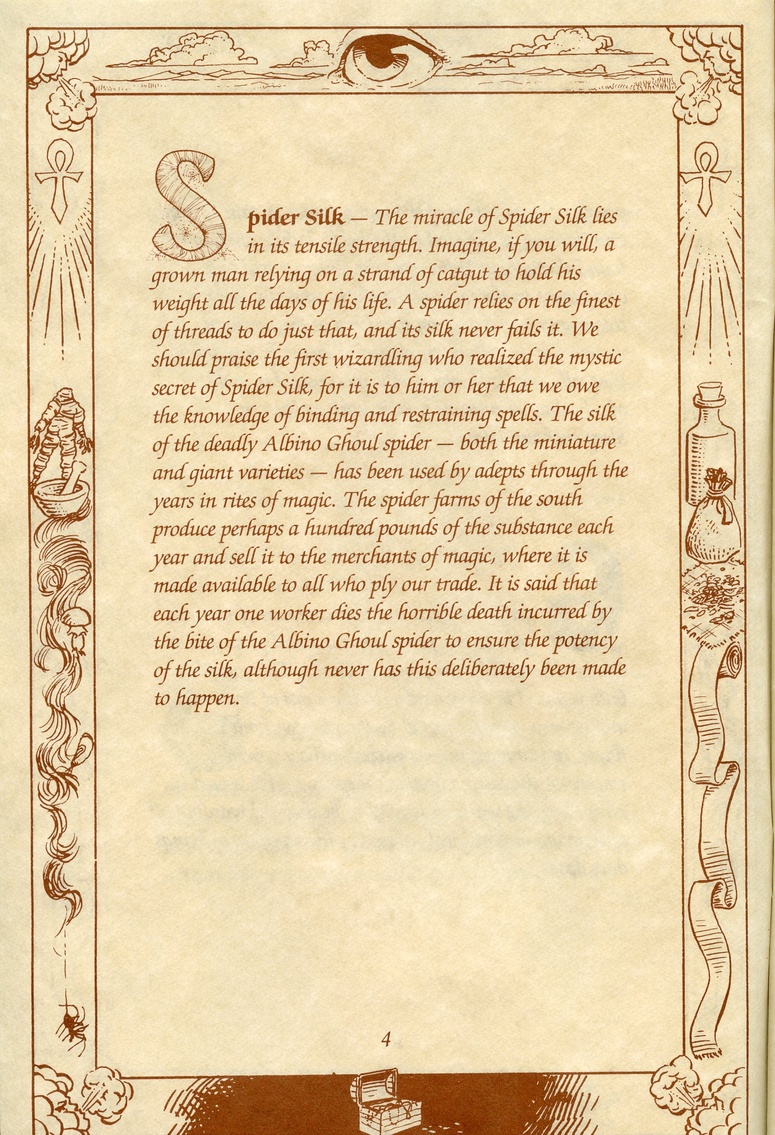 Spider Silk — The miracle of Spider Silk lies
in its tensile strength. Imagine, if you will, a
grown man relying on a strand of catgut to hold his
weight all the days of his life. A spider relies on the finest
of threads to do just that, and its silk never fails it. We
should praise the first wizardling who realized the mystic
secret of Spider Silk, for it is to him or her that we owe
the knowledge of binding and restraining spells. The silk
of the deadly Albino Ghoul spider — both the miniature
and giant varieties — has been used by adepts through the
years in rites of magic. The spider farms of the south
produce perhaps a hundred pounds of the substance each
year and sell it to the merchants of magic, where it is
made available to all who ply our trade. It is said that
each year one worker dies the horrible death incurred by
the bite of the Albino Ghoul spider to ensure the potency
of the silk, although never has this deliberately been made
to happen.
4